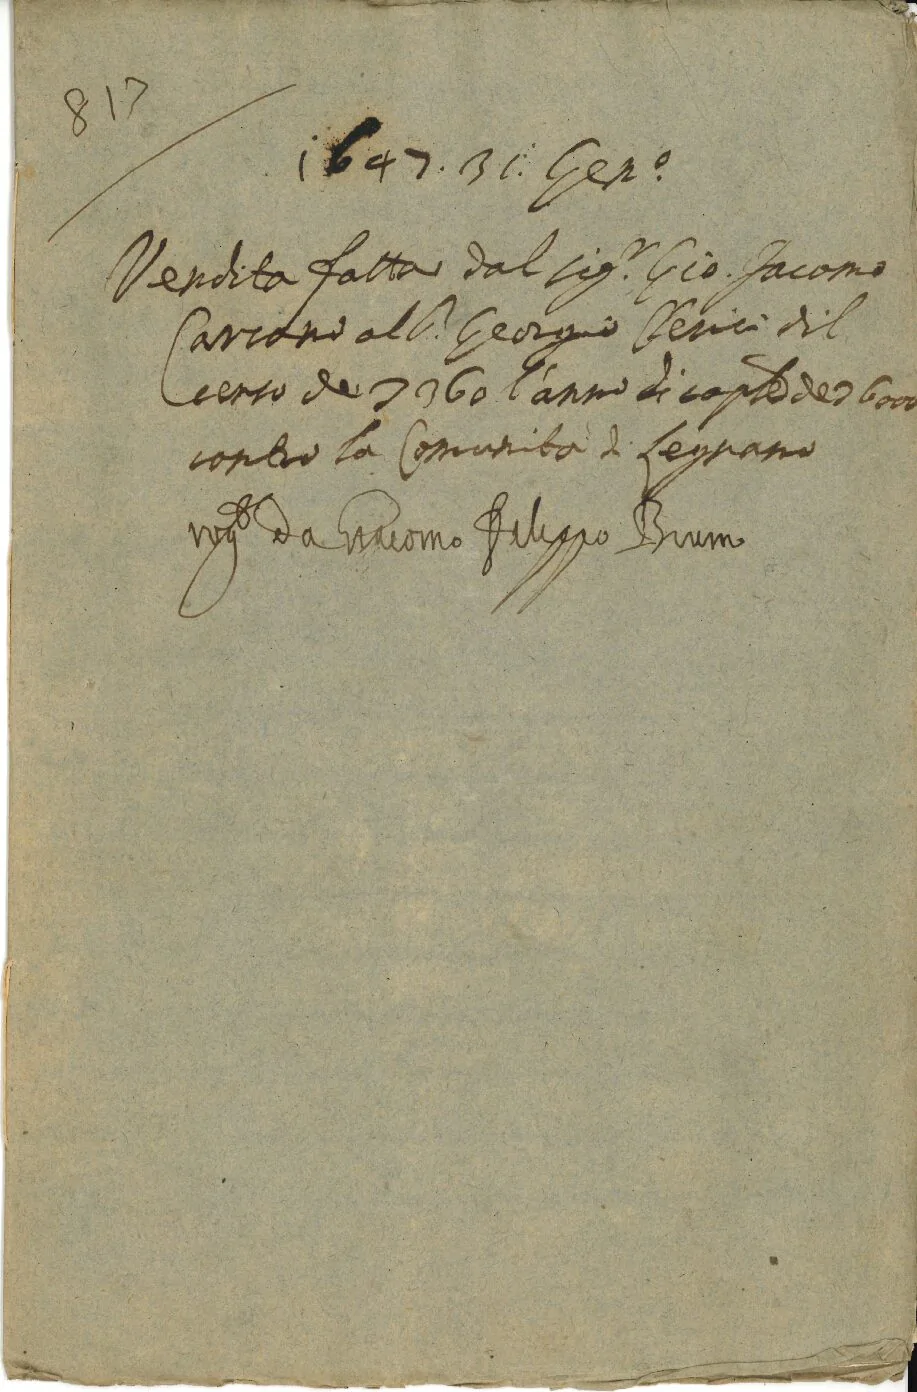 817
1647. 31. Gen.o
Vendita fatta dal Sig.r Gio. Jacomo
Carcano al S.r Georgio Clerici dil
censo de 360 l'anno di cap.le de 6000
contro la Comunità di Legnano
rog.to da Giacomo Filippo